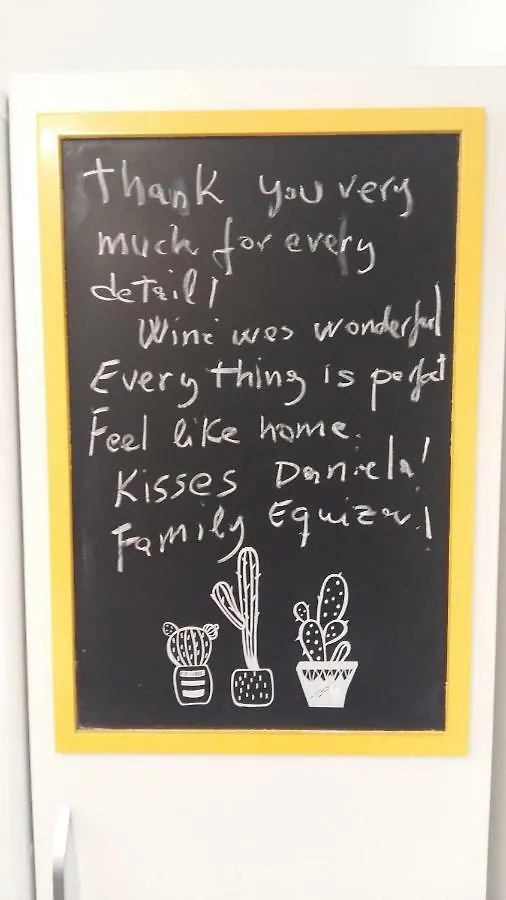 thank you very
much for every
detail!
Wine was wonderful
Everything is perfect
Feel like home.
Kisses Daniela!
Family Equizar!